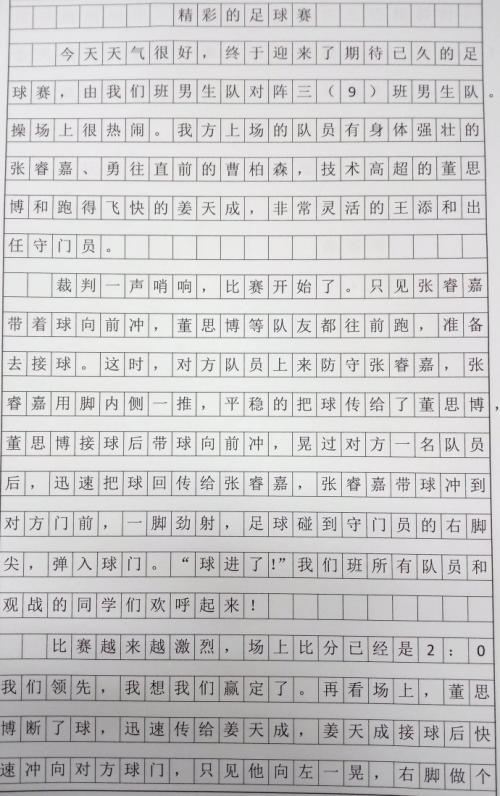 精彩的足球赛
今天天气很好，终于迎来了期待已久的足
球赛，由我们班男生队对阵三（9）班男生队。
操场上很热闹。我方上场的队员有身体强壮的
张睿嘉、勇往直前的曹柏森，技术高超的董思
博和跑得飞快的姜天成，非常灵活的王添和出
任守门员。
裁判一声哨响，比赛开始了。只见张睿嘉
带着球向前冲，董思博等队友都往前跑，准备
去接球。这时，对方队员上来防守张睿嘉，张
睿嘉用脚内侧一推，平稳的把球传给了董思博，
董思博接球后带球向前冲，晃过对方一名队员
后，迅速把球回传给张睿嘉，张睿嘉带球冲到
对方门前，一脚劲射，足球碰到守门员的右脚
尖，弹入球门。“球进了!”我们班所有队员和
观战的同学们欢呼起来！
比赛越来越激烈，场上比分已经是2：0
我们领先，我想我们赢定了。再看场上，董思
博断了球，迅速传给姜天成，姜天成接球后快
速冲向对方球门，只见他向左一晃，右脚做个